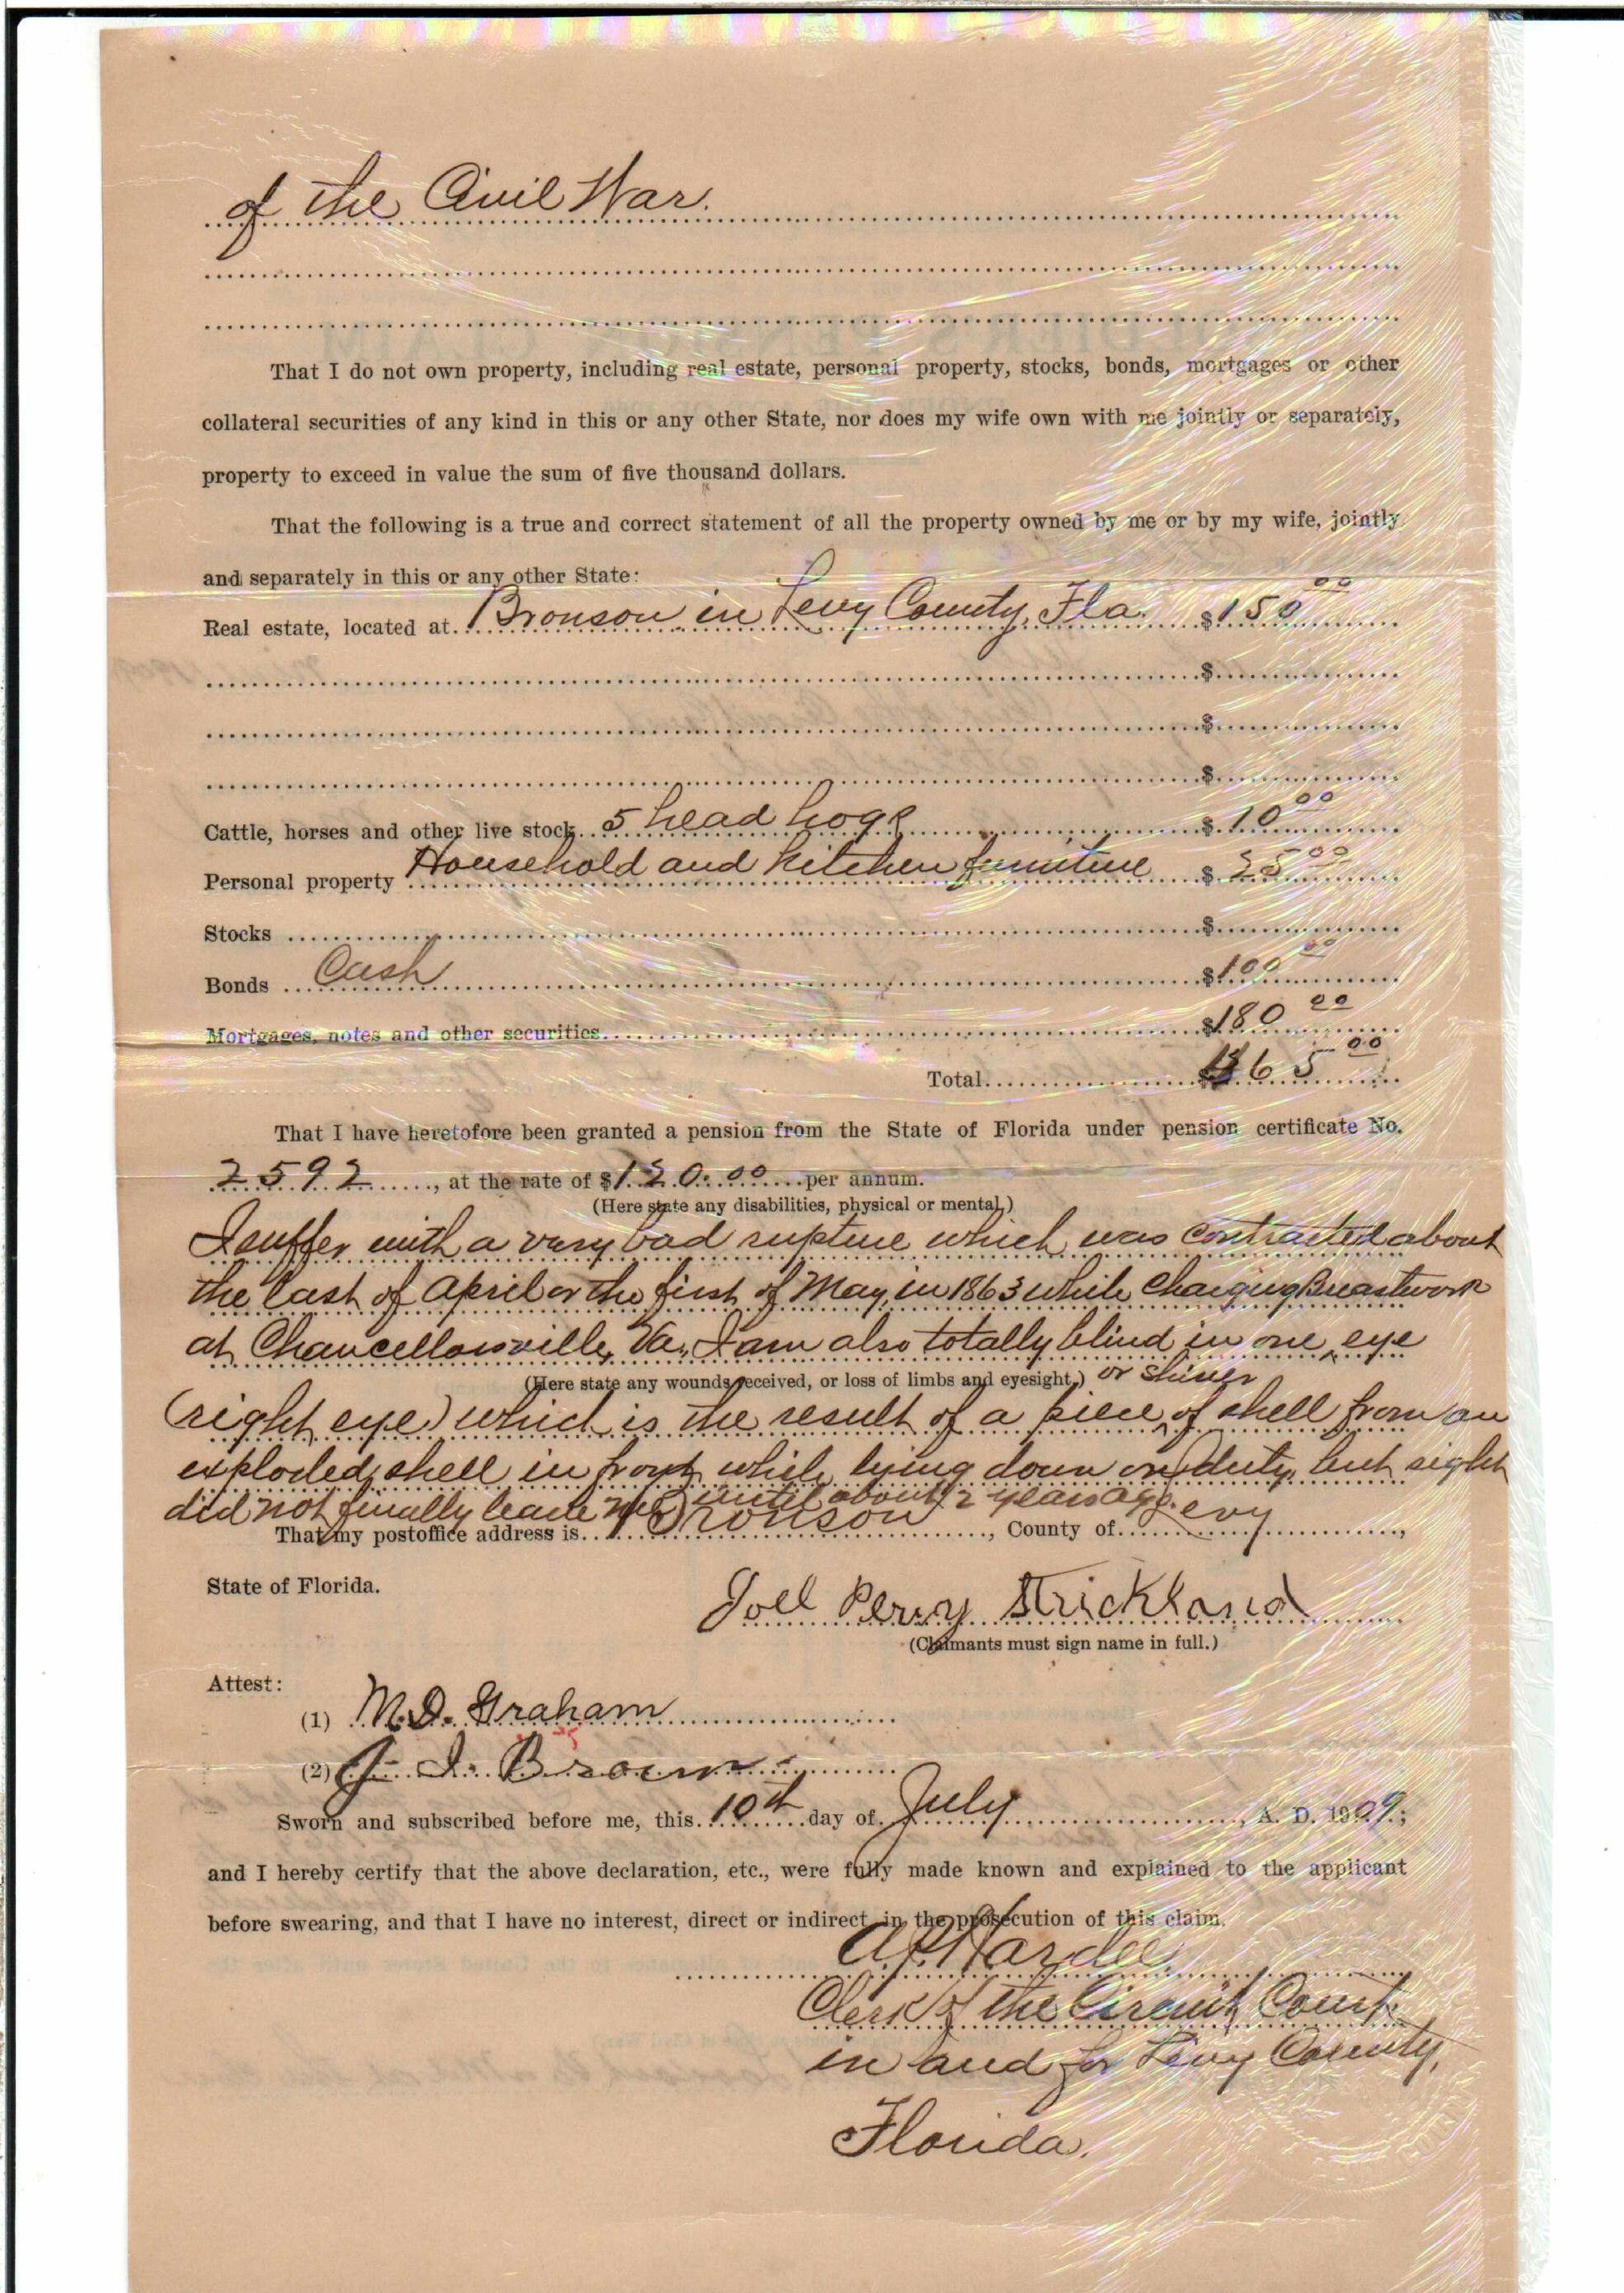 of the Civil War.
That I do not own property, including real estate, personal property, stocks, bonds, mortgages or other
collateral securities of any kind in this or any other State, nor does my wife own with me jointly or separately,
property to exceed in value the sum of five thousand dollars.
That the following is a true and correct statement of all the property owned by me or by my wife, jointly
and separately in this or any other State:
Real estate, located at Bronson in Levy County, Fla. $150 00
$
$
$
Cattle, horses and other live stock 5 head hogs $10 00
Personal property Household and Kitchen furniture $25 00
Stocks $
Bonds Cash $100 00
Mortgages, notes and other securities $180 00
Total 465 00
That I have heretofore been granted a pension from the State of Florida under pension certificate No.
2592, at the rate of $120.00 per annum.
(Here state any disabilities, physical or mental.)
I suffer with a very bad rupture which was contracted about
the last of April or the first of May, in 1863 while Charging Breastwork
at Chancellorsville, Va, I am also totally blind in one eye
(Here state any wounds received, or loss of limbs and eyesight.) or sliver
(right eye) which is the result of a piece of shell from an
exploded shell in front while lying down on duty, but sight
did not finally leave me until about 2 years ago.
That my postoffice address is Bronson, County of Levy,
State of Florida.
Joel Perry Strickland
(Claimants must sign name in full.)
Attest:
(1) M.D. Graham
(2) J. I. Brown
Sworn and subscribed before me, this 10th day of July, A. D. 1909;
and I hereby certify that the above declaration, etc., were fully made known and explained to the applicant
before swearing, and that I have no interest, direct or indirect, in the prosecution of this claim.
A.P. Hardee
Clerk of the Circuit Court
in and for Levy County,
Florida.